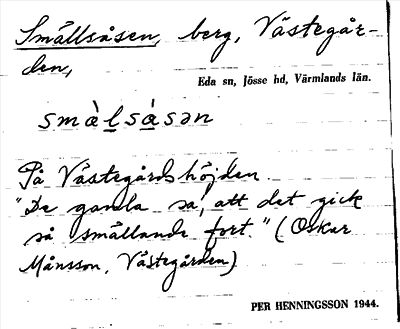 Smällsåsen, berg, Västegår-
den,
Eda sn, Jösse hd, Värmlands län.
smàlsàsən
På Västegårdshöjden.
"De gamla sa, att det gick
så smällande fort." (Oskar
Månsson, Västegården)
PER HENNINGSSON 1944.